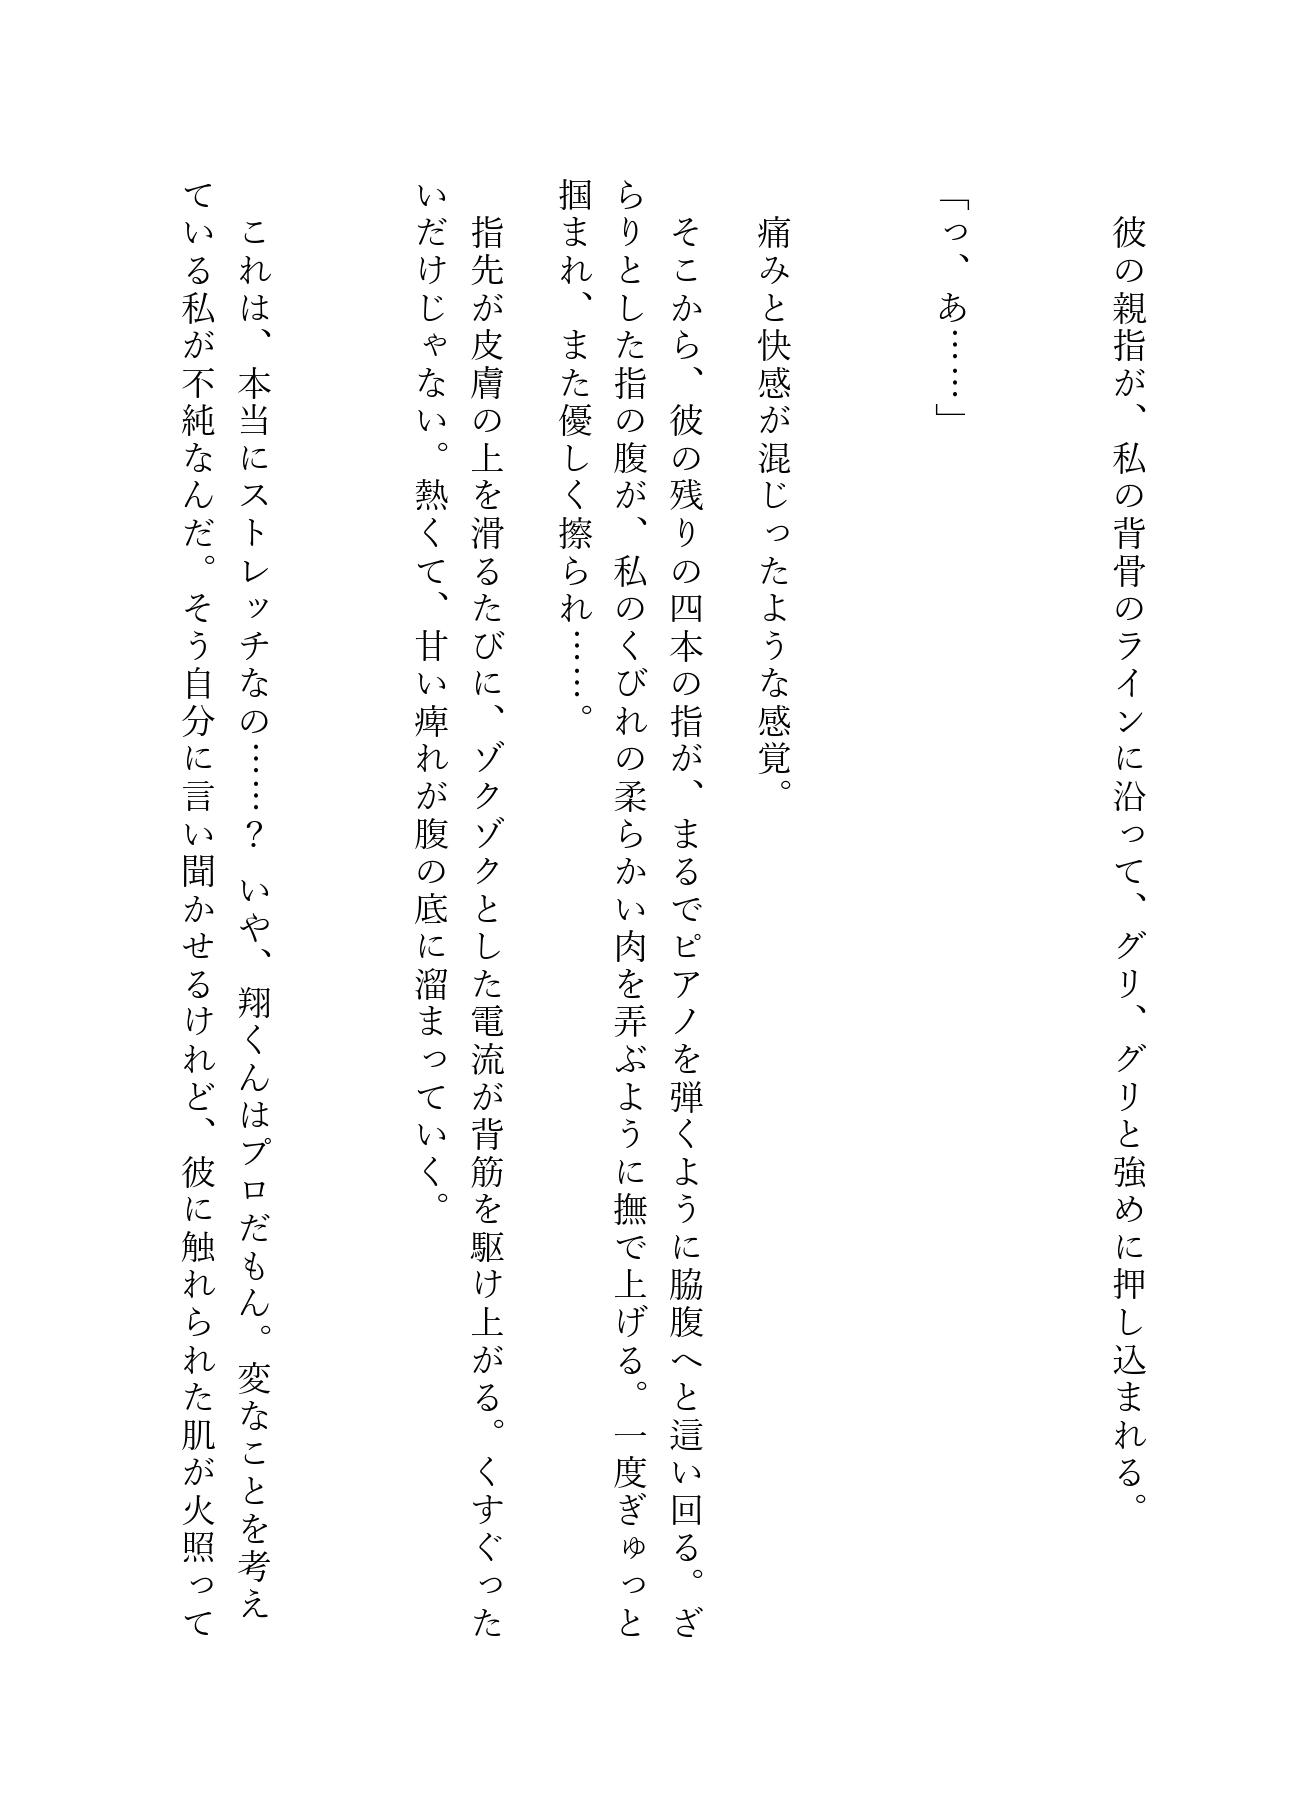 彼の親指が、私の背骨のラインに沿って、グリ、グリと強めに押し込まれる。
「っ、あ……」
痛みと快感が混じったような感覚。
そこから、彼の残りの四本の指が、まるでピアノを弾くように脇腹へと這い回る。ざ
らりとした指の腹が、私のくびれの柔らかい肉を弄ぶように撫で上げる。一度ぎゅっと
掴まれ、また優しく擦られ……。
指先が皮膚の上を滑るたびに、ゾクゾクとした電流が背筋を駆け上がる。くすぐった
いだけじゃない。熱くて、甘い痺れが腹の底に溜まっていく。
これは、本当にストレッチなの……？ いや、翔くんはプロだもん。変なことを考え
ている私が不純なんだ。そう自分に言い聞かせるけれど、彼に触れられた肌が火照って